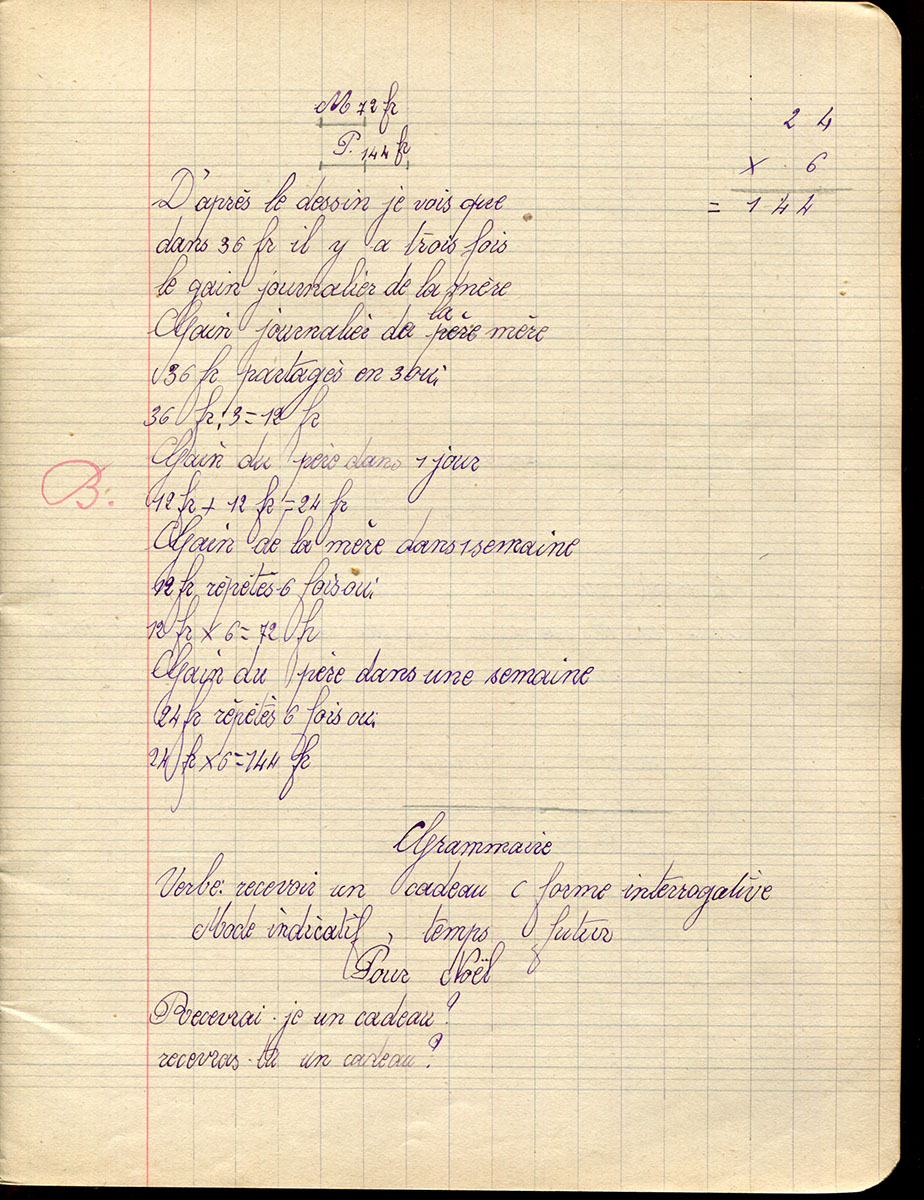 M 72 fr
P. 144 fr
2 4
x 6
= 1 4 4
D'après le dessin je vois que
dans 36 fr il y a trois fois
le gain journalier de la mère
la
Gain journalier de père mère
36 fr partagés en 3 ou:
36 fr : 3 = 12 fr
Gain du père dans 1 jour
B.
12 fr + 12 fr = 24 fr
Gain de la mère dans 1 semaine
12 fr répétés 6 fois ou:
12 fr x 6 = 72 fr
Gain du père dans une semaine
24 fr répétés 6 fois ou:
24 fr x 6 = 144 fr
Grammaire
Verbe: recevoir un cadeau ( forme interrogative
Mode indicatif, temps futur
Pour Noël
Recevrai-je un cadeau?
recevras-tu un cadeau?